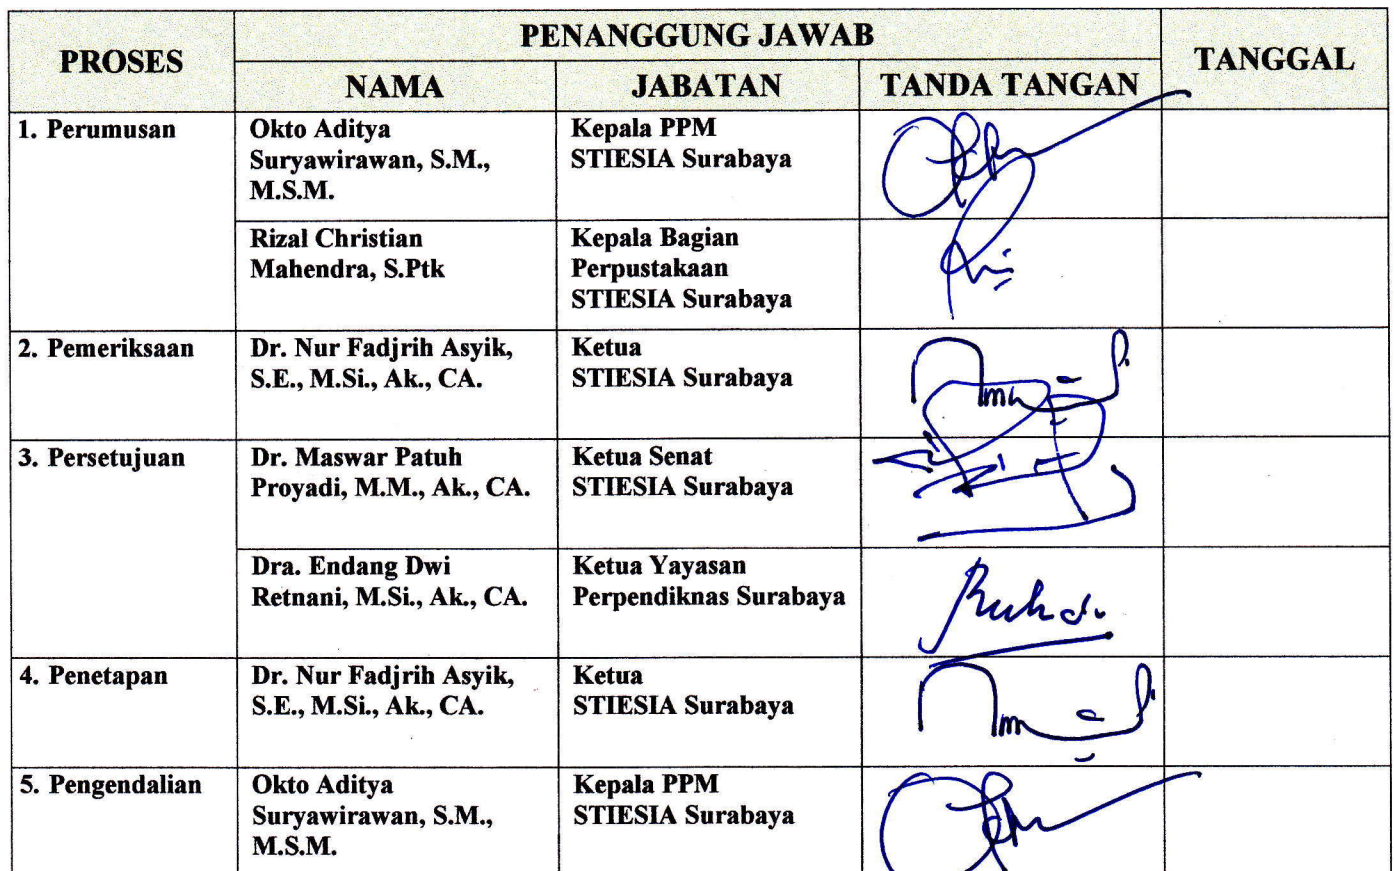 PROSES
PENANGGUNG JAWAB
TANGGAL
NAMA
JABATAN
TANDA TANGAN
1. Perumusan
Okto Aditya
Suryawirawan, S.M.,
M.S.M.
Kepala PPM
STIESIA Surabaya
Rizal Christian
Mahendra, S.Ptk
Kepala Bagian
Perpustakaan
STIESIA Surabaya
2. Pemeriksaan
Dr. Nur Fadjrih Asyik,
S.E., M.Si., Ak., CA.
Ketua
STIESIA Surabaya
3. Persetujuan
Dr. Maswar Patuh
Proyadi, M.M., Ak., CA.
Ketua Senat
STIESIA Surabaya
Dra. Endang Dwi
Retnani, M.Si., Ak., CA.
Ketua Yayasan
Perpendiknas Surabaya
4. Penetapan
Dr. Nur Fadjrih Asyik,
S.E., M.Si., Ak., CA.
Ketua
STIESIA Surabaya
5. Pengendalian
Okto Aditya
Suryawirawan, S.M.,
M.S.M.
Kepala PPM
STIESIA Surabaya